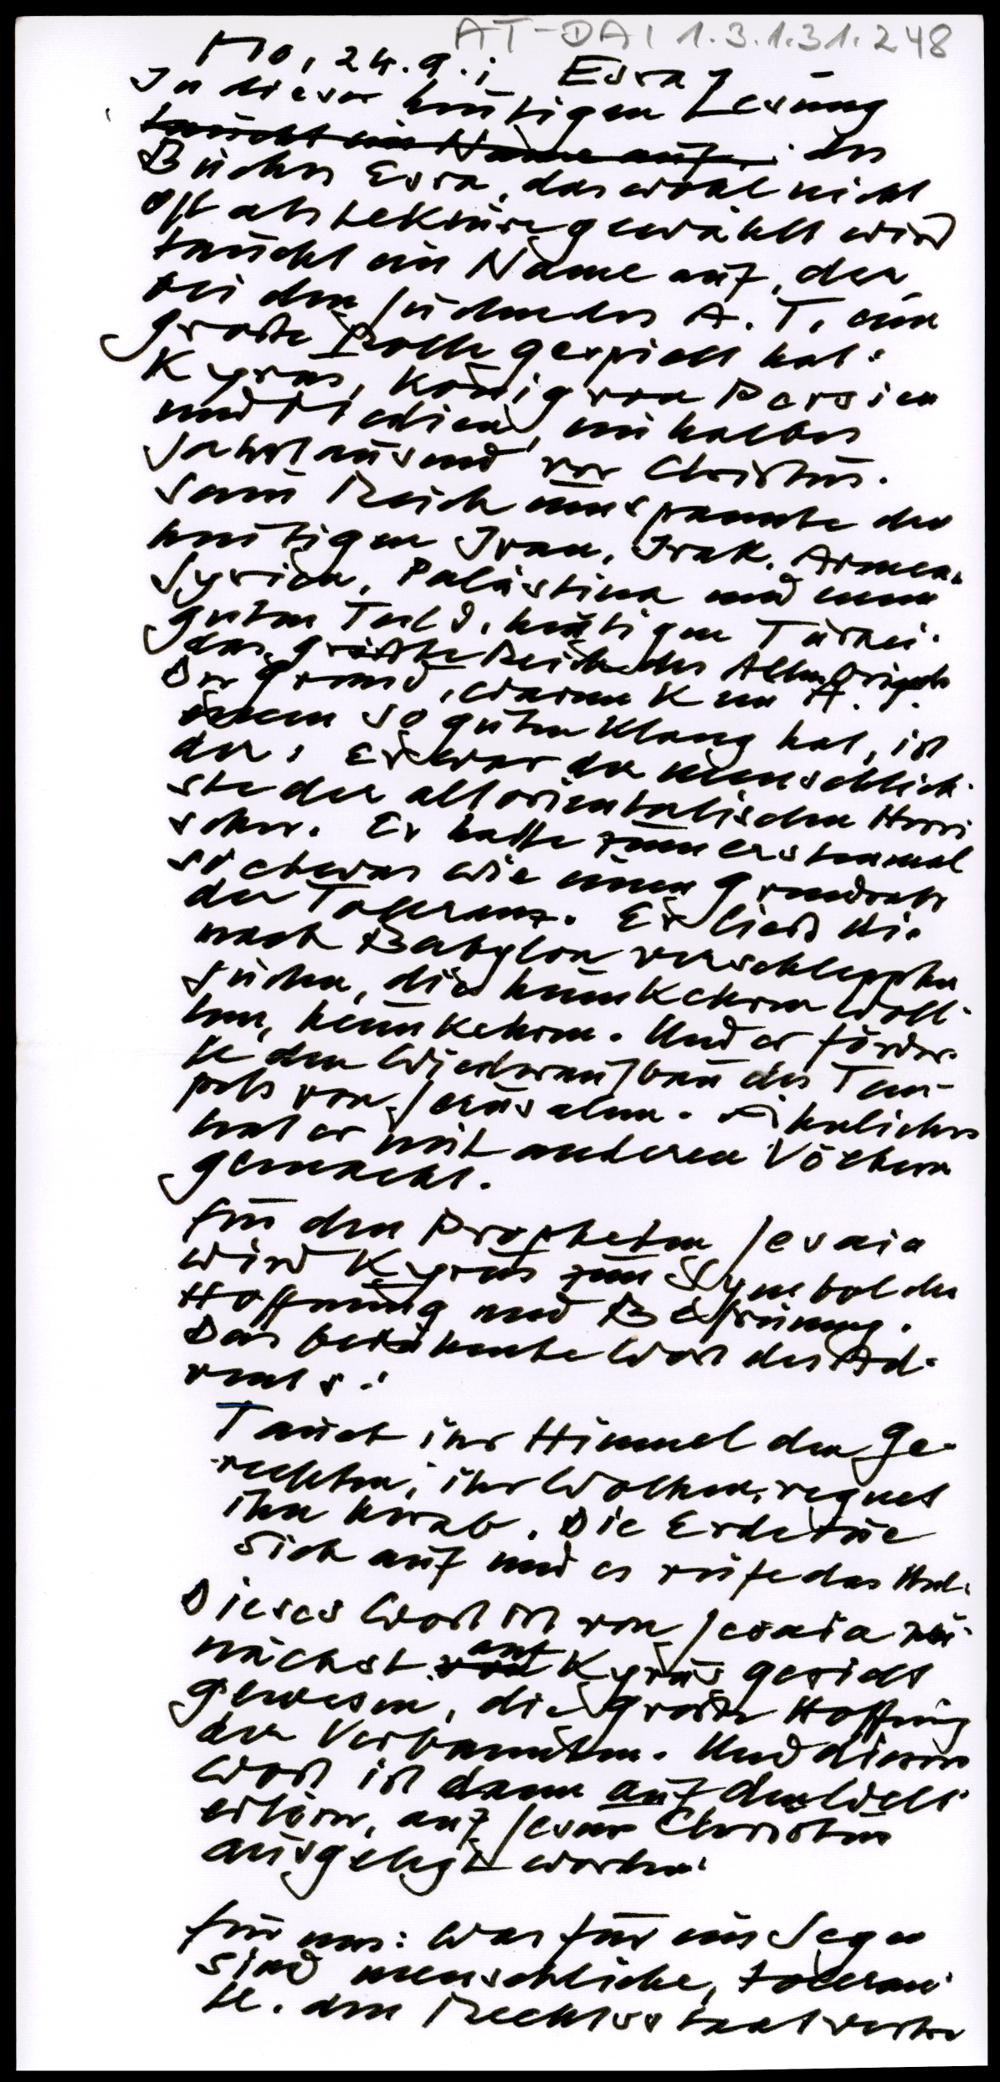 AT-DA 1.3.1.31.248
Mo, 24.9.: Esra 1
In dieser heutigen Lesung
taucht ein Name auf, des
Buches Esra, das wohl nicht
oft als Lektüre gewählt wird
taucht ein Name auf, der
bei den Juden des A.T. eine
große Rolle gespielt hat:
Kyros, König von Persien
und Medien, ein halbes
Jahrtausend vor Christus.
Sein Reich umspannte den
heutigen Iran, Irak, Armen.
Syrien, Palästina und einen
guten Teil d. heutigen Türkei.
das größte Reich des Alten Orients
Der Grund, warum K im A.T.
einen so guten Klang hat, ist
der: Er war der menschlich-
ste der altorientalischen Herr-
scher. Er hatte zum erstenmal
so etwas wie einen Grundsatz
der Toleranz. Er ließ die
nach Babylon verschleppten
Juden, die heimkehren woll-
ten, heimkehren. Und er förder-
te den Wiederaufbau des Tem-
pels von Jerusalem. Ähnliches
hat er mit anderen Völkern
gemacht.
Für den Propheten Jesaia
wird Kyrus zum Symbol der
Hoffnung und Befreiung.
Das bekannte Wort des Ad-
vents:
Tauet ihr Himmel den Ge-
rechten, ihr Wolken, regnet
ihn herab. Die Erde tue
sich auf und es reife das Heil.
Dieses Wort ist von Jesaia zu-
nächst von auf Kyrus gezielt
gewesen, die große Hoffnung
der Verbannten. Und dieses
Wort ist dann auf den Welt-
erlöser, auf Jesus Christus
ausgelegt worden.
Für uns: Was für ein Segen
sind menschliche, toleran-
te, den Rechtsstaat